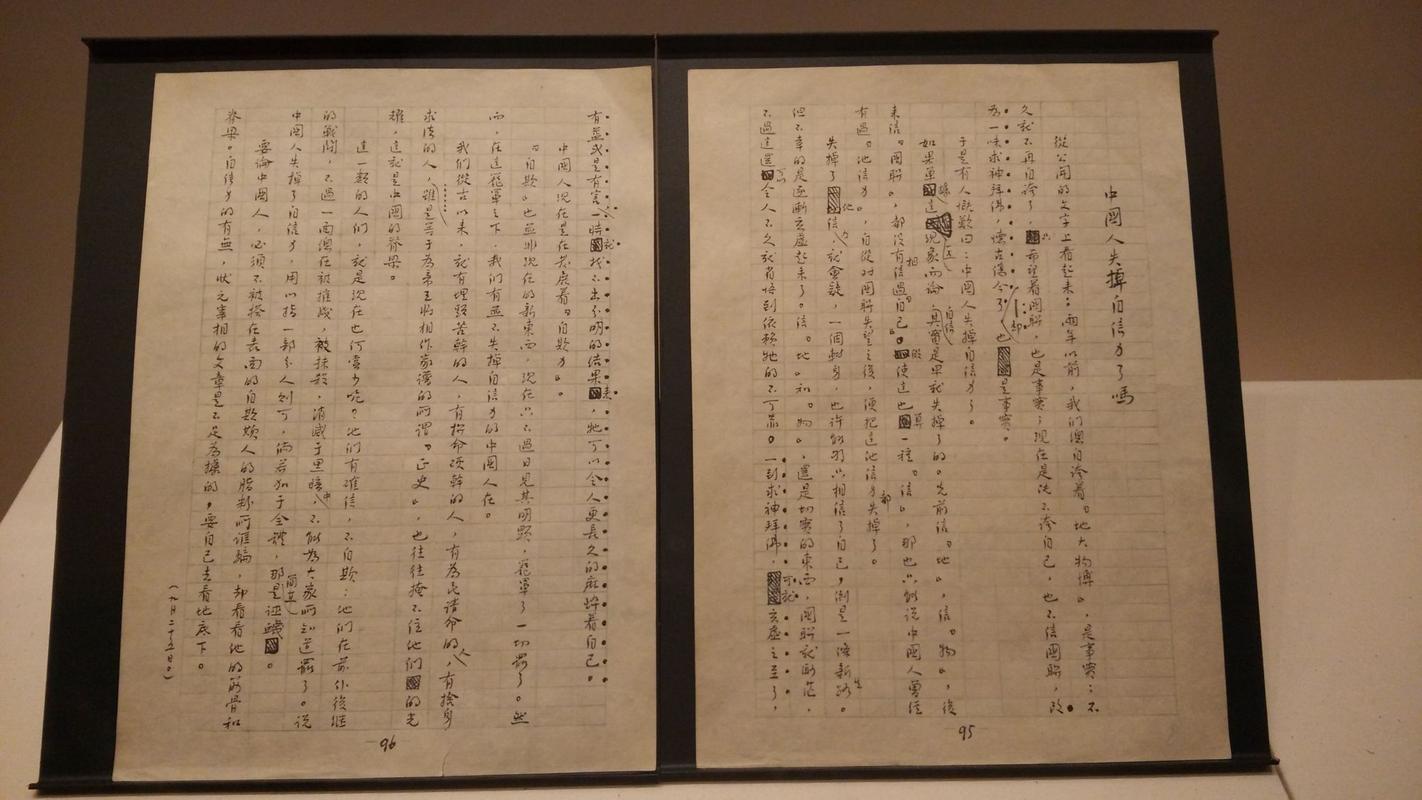 中國人失掉自信力了嗎
從公開的文字上看起來：兩年以前，我們總自誇着「地大物博」，是事實；不
久就不再自誇了，只希望着國聯，也是事實；現在是既不誇自己，也不信國聯，改
為一味求神拜佛，懷古傷今了，卻也是事實。
于是有人慨歎曰：中國人失掉自信力了。
如果單據這一點現象而論，自信其實是早就失掉了的。先前信「地」，信「物」，後
來信「國聯」，都沒有相信過「自己」。假使這也算一種「信」，那也只能說中國人曾經
有過「他信力」，自從對國聯失望之後，便把這他信力都失掉了。
失掉了他信力，就會疑，一個轉身，也許能夠只相信了自己，倒是一條新生路，
但不幸的是逐漸玄虛起來了。信「地」和「物」，還是切實的東西，國聯就渺茫，
不過這還可以令人不久就省悟到依賴牠的不可靠。一到求神拜佛，可就玄虛之至了，
95
有益或是有害，一時就找不出分明的結果來，牠可以令人更長久的麻醉着自己。
中國人現在是在發展着「自欺力」。
「自欺」也並非現在的新東西，現在只不過日見其明顯，籠罩了一切罷了。然
而，在這籠罩之下，我們有並不失掉自信力的中國人在。
我們從古以來，就有埋頭苦幹的人，有拚命硬幹的人，有為民請命的人，有捨身
求法的人，雖是等于為帝王將相作家譜的所謂「正史」，也往往掩不住他們的光
耀，這就是中國的脊梁。
這一類的人們，就是現在也何嘗少呢？他們有確信，不自欺；他們在前仆後繼
的戰鬥，不過一面總在被摧殘，被抹殺，消滅于黑暗中，不能為大家所知道罷了。說
中國人失掉了自信力，用以指一部分人則可，倘若加于全體，那簡直是誣衊。
要論中國人，必須不被搽在表面的自欺欺人的脂粉所誆騙，卻看看他的筋骨和
脊梁。自信力的有無，狀元宰相的文章是不足為據的，要自己去看地底下。
（九月二十五日。）
96